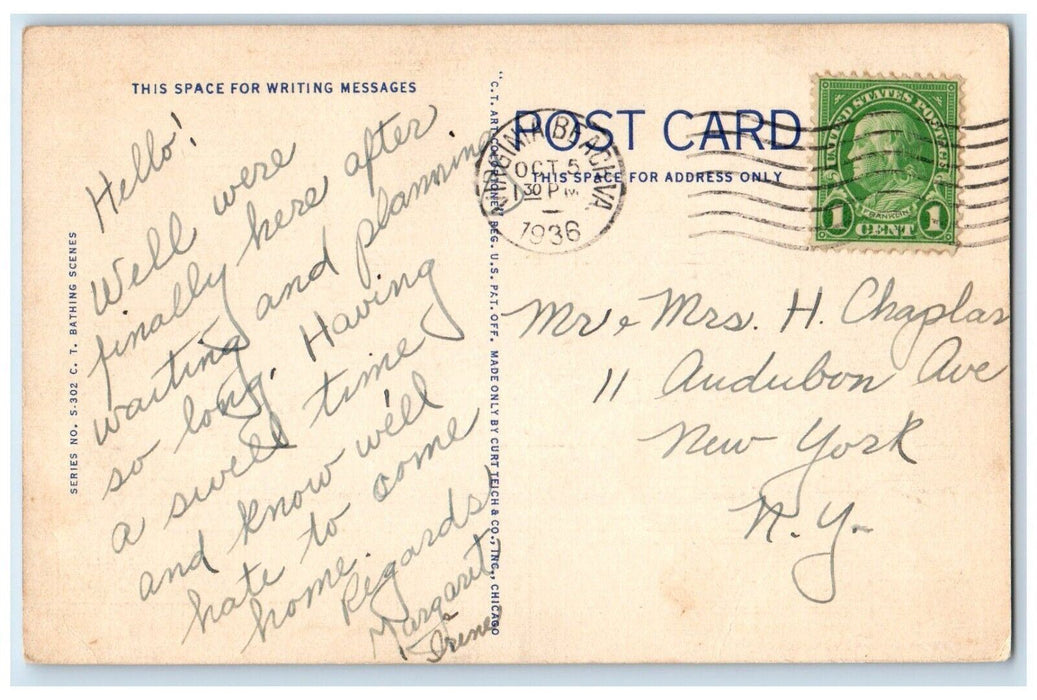 THIS SPACE FOR WRITING MESSAGES
Hello!
Well were
finally here after
waiting and planning
so long. Having
a swell time
and know we'll
hate to come
home.
Regards!
Margaret
Irene
SERIES NO. S-302 C. T. BATHING SCENES
"C.T. ART-COLORTONE" REG. U.S. PAT. OFF. MADE ONLY BY CURT TEICH & CO., INC., CHICAGO
POST CARD
THIS SPACE FOR ADDRESS ONLY
VIRGINIA BEACH, VA.
OCT 5
1 30 PM
1936
UNITED STATES POSTAGE
FRANKLIN
1 CENT 1
Mr & Mrs. H. Chaplar
11 Audubon Ave
New York
N.Y.